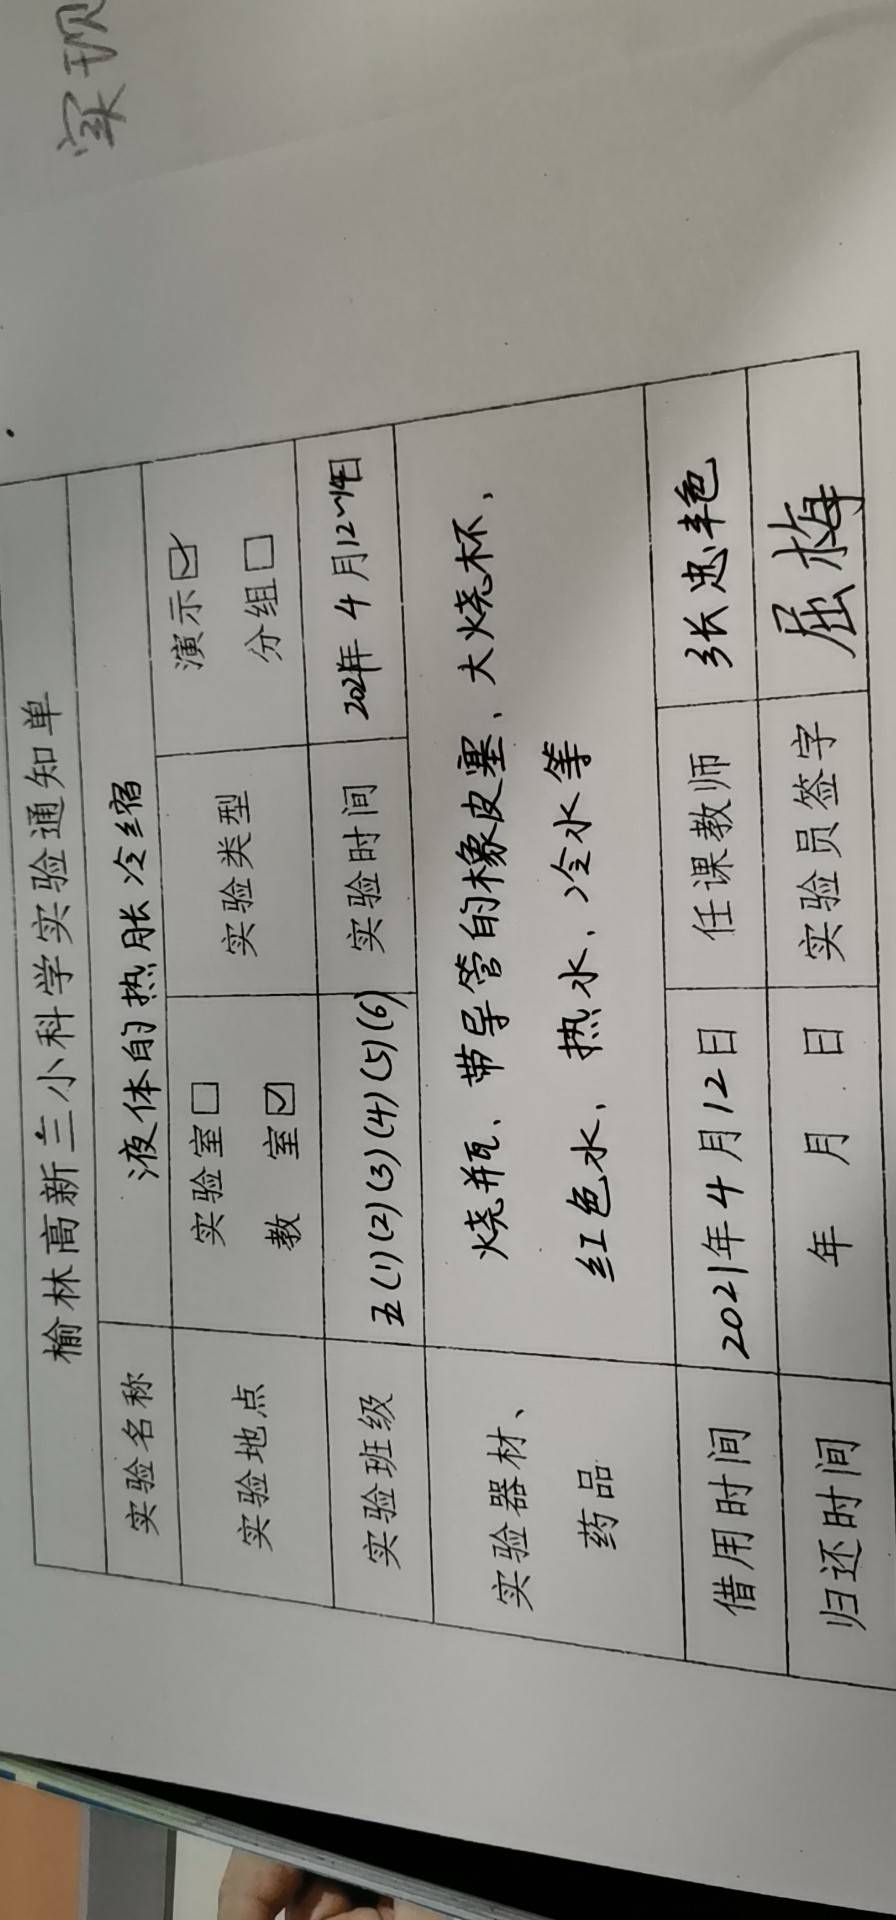 榆林高新三小科学实验通知单
实验名称 液体的热胀冷缩
实验地点 实验室☐ 教 室☑ 实验类型 演示☑ 分组☐
实验班级 五(1)(2)(3)(4)(5)(6) 实验时间 2021年4月12~14日
实验器材、
药品
烧瓶、带导管的橡皮塞、大烧杯、
红色水、热水、冷水等
借用时间 2021年4月12日 任课教师 张忠艳
归还时间 年 月 日 实验员签字 屈梅